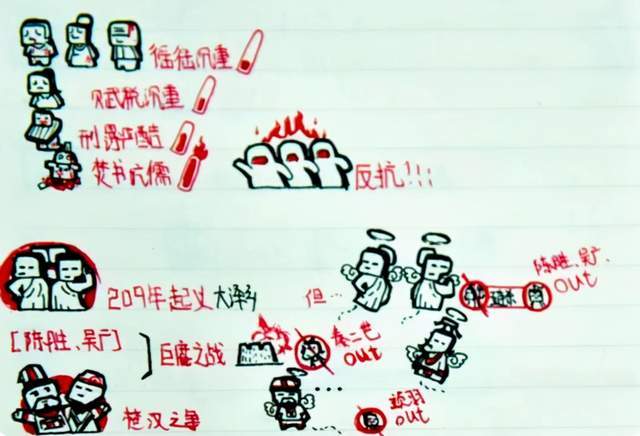 徭役沉重
赋税沉重
刑罚严酷
焚书坑儒
反抗!!!
209年起义 大泽乡
但...
陈胜、吴广
out
[陈胜、吴广]
巨鹿之战
秦二世
out
...
楚汉之争
项羽
out